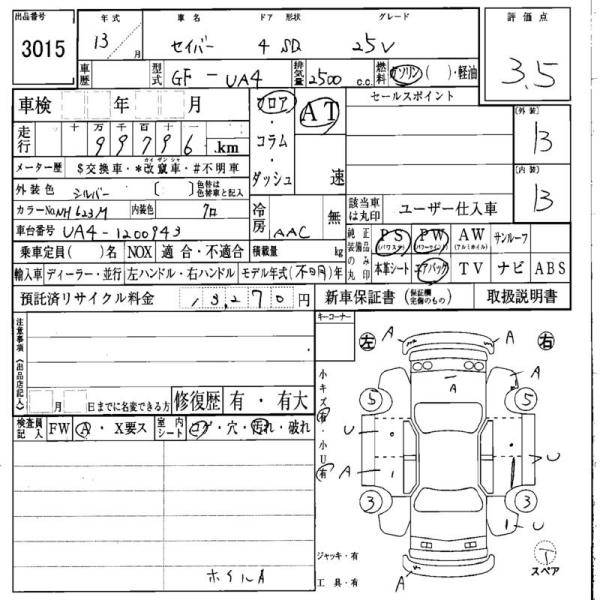 出品番号 年式 車名 ドア 形状 グレード 評価点
3015 13 月 セイバー 4 SD 25V 3.5
車歴 型式 GF - UA4 排気量 2500 c.c. 燃料 ガソリン ( )・軽油
車検 年 月 フロア・コラム・ダッシュ AT 速 セールスポイント [外装] B
走行 十 万 千 百 十 一
99796 .km
メーター歴 $交換車・*改竄車・#不明車
カイ ザン シャ
外装色 シルバー ( ) 色替は色替車と記入 [内装] B
カラーNo. NH623M 内装色 クロ 冷房 AAC 無 該当車は丸印 ユーザー仕入車
車台番号 UA4-1200943 純正装備品のみ丸印 PS (パワステ) PW (パワーウインド) AW (アルミホイル) サンルーフ
乗車定員( )名 NOX 適合・不適合 積載量 kg
本革シート エアバック TV ナビ ABS
輸入車 ディーラー・並行 左ハンドル・右ハンドル モデル年式(不明)年
預託済リサイクル料金 13,270 円 新車保証書 (保証欄完備のもの) 取扱説明書
注意事項(出品店記入)
キーコーナー
左 右
月 日までに名変できる方 修復歴 有・有大
検査員記入 FW A・X要ス 室内シート コゲ・穴・汚れ・破れ
小キズ有・小U有
A A A A
5 5
U U
A
3 3
U
A
ホイルA
ジャッキ・有
工具・有
T
スペア